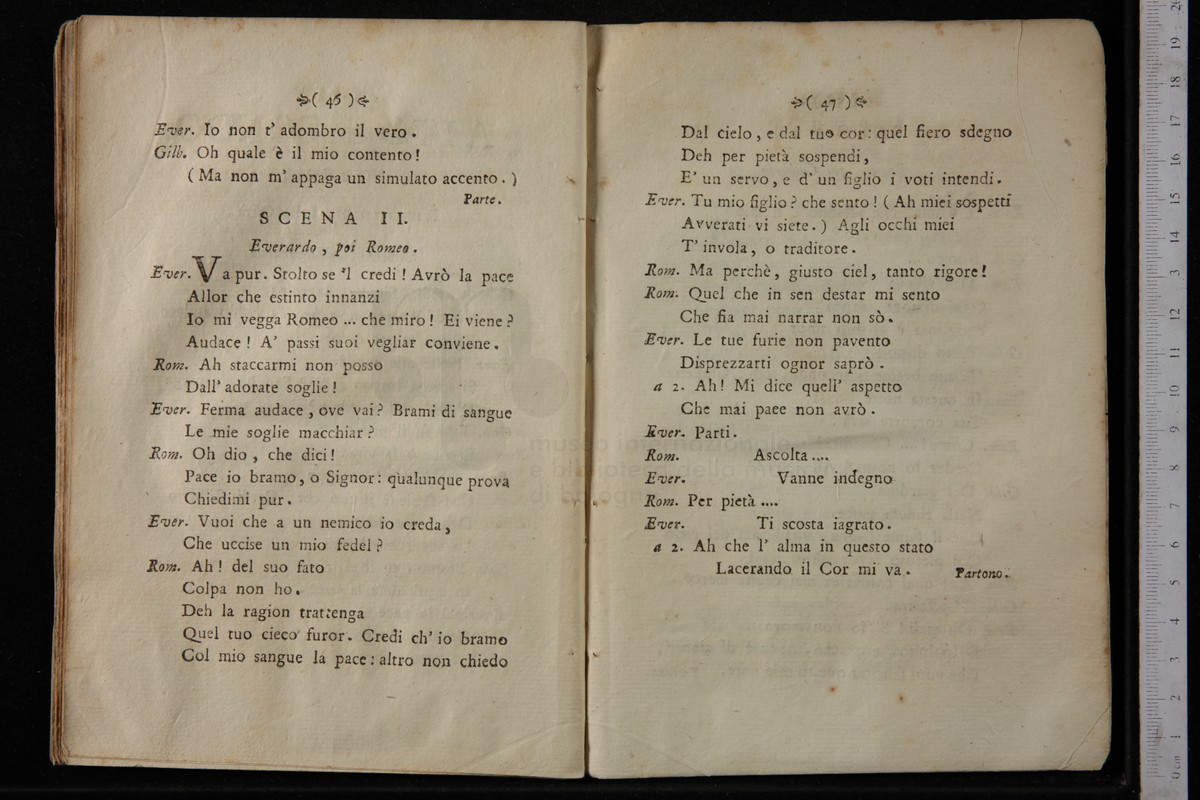 ( 46 )
Ever. Io non t' adombro il vero.
Gilb. Oh quale è il mio contento!
( Ma non m' appaga un simulato accento. )
Parte.
SCENA II.
Everardo, poi Romeo.
Ever. Va pur. Stolto se 'l credi! Avrò la pace
Allor che estinto innanzi
Io mi vegga Romeo ... che miro! Ei viene?
Audace! A' passi suoi vegliar conviene.
Rom. Ah staccarmi non posso
Dall' adorate soglie!
Ever. Ferma audace, ove vai? Brami di sangue
Le mie soglie macchiar?
Rom. Oh dio, che dici!
Pace io bramo, o Signor: qualunque prova
Chiedimi pur.
Ever. Vuoi che a un nemico io creda,
Che uccise un mio fedel?
Rom. Ah! del suo fato
Colpa non ho.
Deh la ragion trattenga
Quel tuo cieco furor. Credi ch' io bramo
Col mio sangue la pace: altro non chiedo
( 47 )
Dal cielo, e dal tuo cor: quel fiero sdegno
Deh per pietà sospendi,
E' un servo, e d' un figlio i voti intendi.
Ever. Tu mio figlio? che sento! ( Ah miei sospetti
Avverati vi siete. ) Agli occhi miei
T' invola, o traditore.
Rom. Ma perchè, giusto ciel, tanto rigore!
Rom. Quel che in sen destar mi sento
Che fia mai narrar non sò.
Ever. Le tue furie non pavento
Disprezzarti ognor saprò.
a 2. Ah! Mi dice quell' aspetto
Che mai paee non avrò.
Ever. Parti.
Rom. Ascolta....
Ever. Vanne indegno
Rom. Per pietà ....
Ever. Ti scosta iagrato.
a 2. Ah che l' alma in questo stato
Lacerando il Cor mi va. Partono.
museo internazionale
e biblioteca della musica
di bologna
0 cm 1 2 3 4 5 6 7 8 9 10 11 12 13 14 15 16 17 18 19